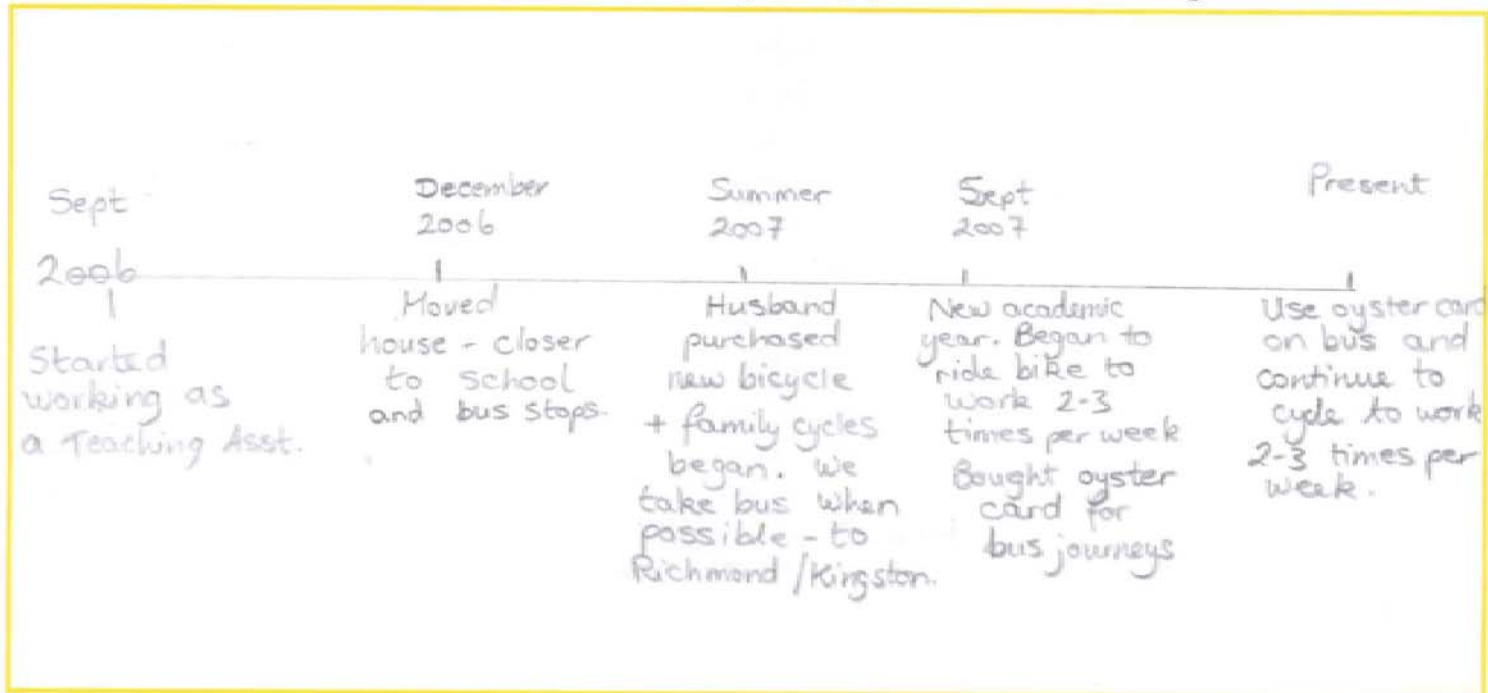 Sept
2006
Started
working as
a Teaching Asst.
December
2006
Moved
house - closer
to school
and bus stops.
Summer
2007
Husband
purchased
new bicycle
+ family cycles
began. We
take bus when
possible - to
Richmond / Kingston.
Sept
2007
New academic
year. Began to
ride bike to
work 2-3
times per week
Bought oyster
card for
bus journeys
Present
Use oyster card
on bus and
continue to
cycle to work
2-3 times per
week.